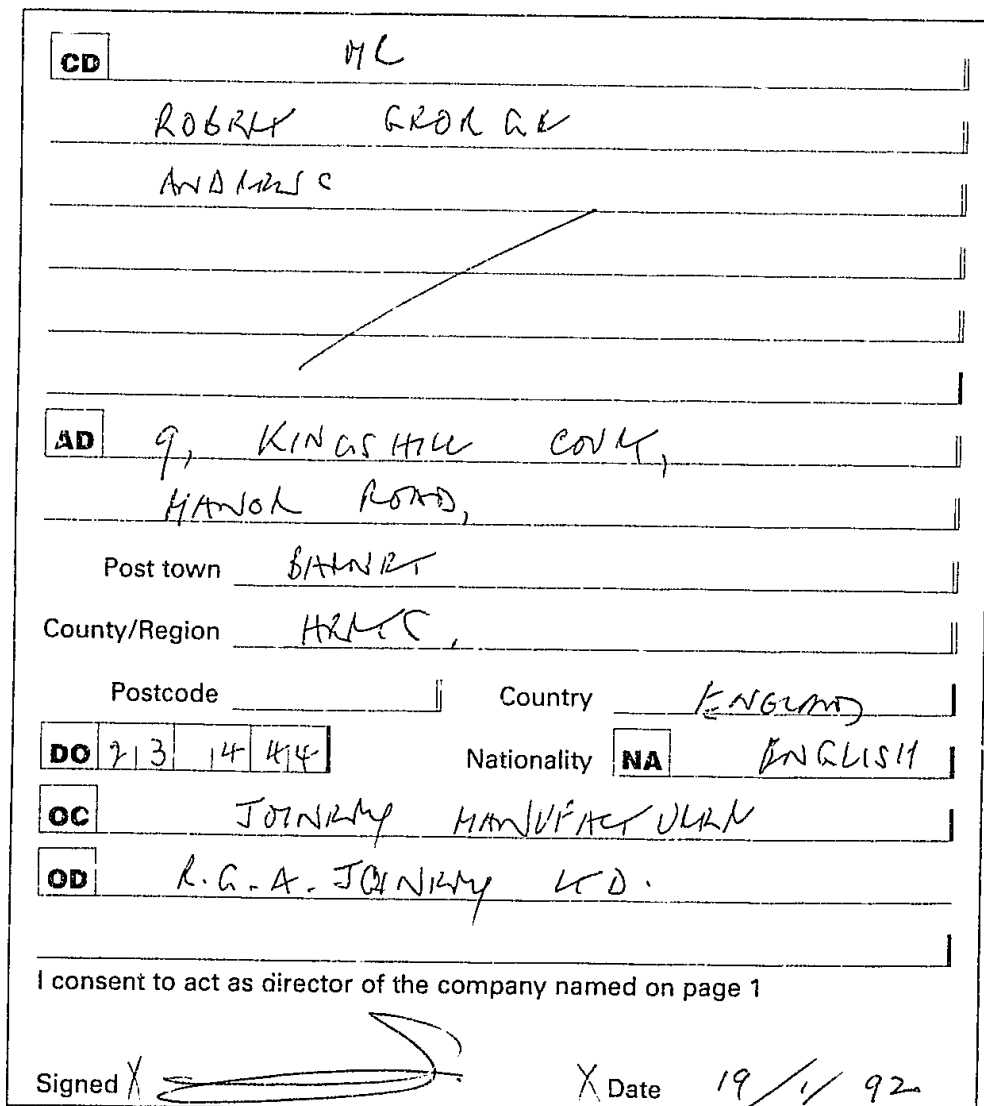 CD MR
ROBERT GEORGE
ANDREWS
AD 9, KINGSHILL COURT,
MANOR ROAD,
Post town BARNET
County/Region HERTS,
Postcode Country ENGLAND
DO 23 4 44 Nationality NA ENGLISH
OC JOINERY MANUFACTURER
OD R.G.A. JOINERY LTD.
I consent to act as director of the company named on page 1
Signed X X Date 19/1/92